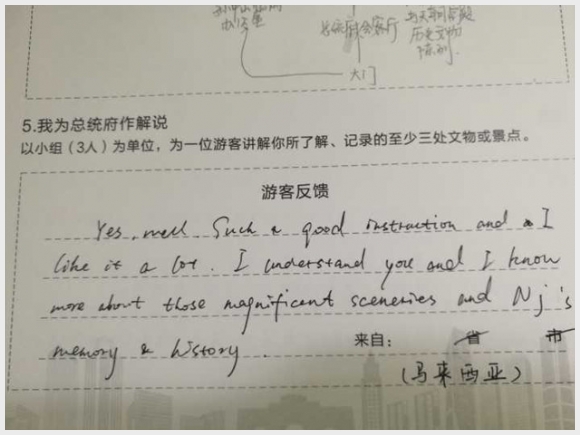 办公室
总统府会客厅
历史文物
陈列
大门
5.我为总统府作解说
以小组（3人）为单位，为一位游客讲解你所了解、记录的至少三处文物或景点。
游客反馈
Yes, well. Such a good instruction and I
like it a lot. I understand you and I know
more about those magnificent sceneries and Nj's
memory & history.
来自： 省 市
（马来西亚）